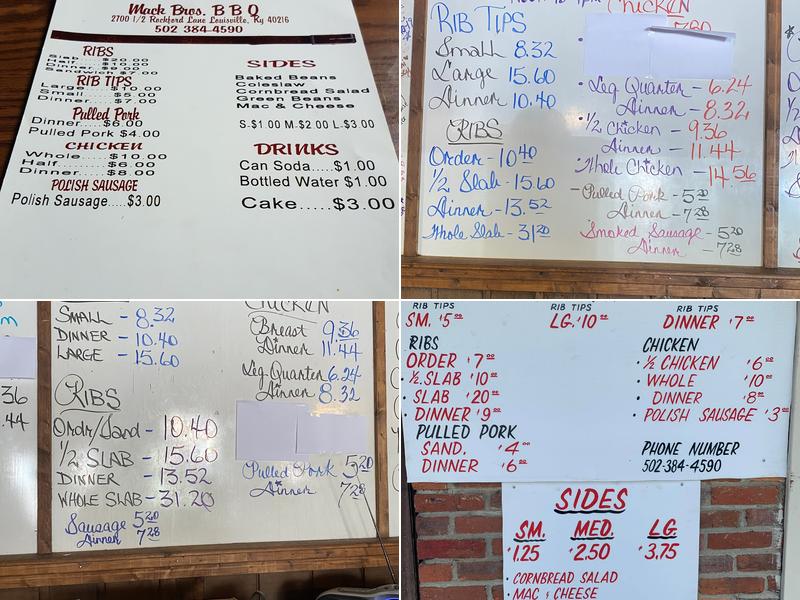 Mack Bros. B B Q
2700 1/2 Rockford Lane Louisville, Ky 40216
502 384-4590
RIBS
Slab......$20.00
Half
Dinner
Sandwich $7.00
RIB TIPS
Large......$10.00
Small......$5.00
Dinner.....$7.00
Pulled Pork
Dinner.....$6.00
Pulled Pork $4.00
CHICKEN
Whole......$10.00
Half........$6.00
Dinner.....$8.00
POLISH SAUSAGE
Polish Sausage.....$3.00
SIDES
Baked Beans
Coleslaw
Cornbread Salad
Green Beans
Mac & Cheese
S-$1.00 M-$2.00 L-$3.00
DRINKS
Can Soda.....$1.00
Bottled Water $1.00
Cake.....$3.00
RIB TIPS
Small 8.32
Large 15.60
Dinner 10.40
RIBS
Order - 10 40
1/2 Slab - 15.60
Dinner - 13.52
Whole Slab - 31 20
Chicken
7.80
· Leg Quarter - 6.24
Dinner - 8.32
· 1/2 Chicken - 9.36
Dinner - 11.44
Whole Chicken - 14.56
- Pulled Pork - 5 20
Dinner - 7 28
Smoked Sausage - 5 20
Dinner - 7 28
36
.44
SMALL - 8.32
DINNER - 10.40
LARGE - 15.60
RIBS
Ordr/Sand - 10.40
1/2 SLAB - 15.60
DINNER - 13.52
WHOLE SLAB - 31.20
Sausage 5 20
Dinner 7 28
Chicken
Breast 9.36
Dinner 11.44
Leg Quarter 6.24
Dinner 8.32
Pulled Pork 5 20
Dinner 7 28
RIB TIPS
SM. $5 00
RIB TIPS
LG. $10 00
RIB TIPS
DINNER $7 00
RIBS
ORDER $7 00
· 1/2 SLAB $10 00
· SLAB $20 00
· DINNER $9 00
PULLED PORK
SAND. $4 00
DINNER $6 00
CHICKEN
· 1/2 CHICKEN $6 00
· WHOLE $10 00
· DINNER $8 00
· POLISH SAUSAGE $3 00
PHONE NUMBER
502-384-4590
SIDES
SM. MED. LG
$1.25 $2.50 $3.75
· CORNBREAD SALAD
· MAC & CHEESE